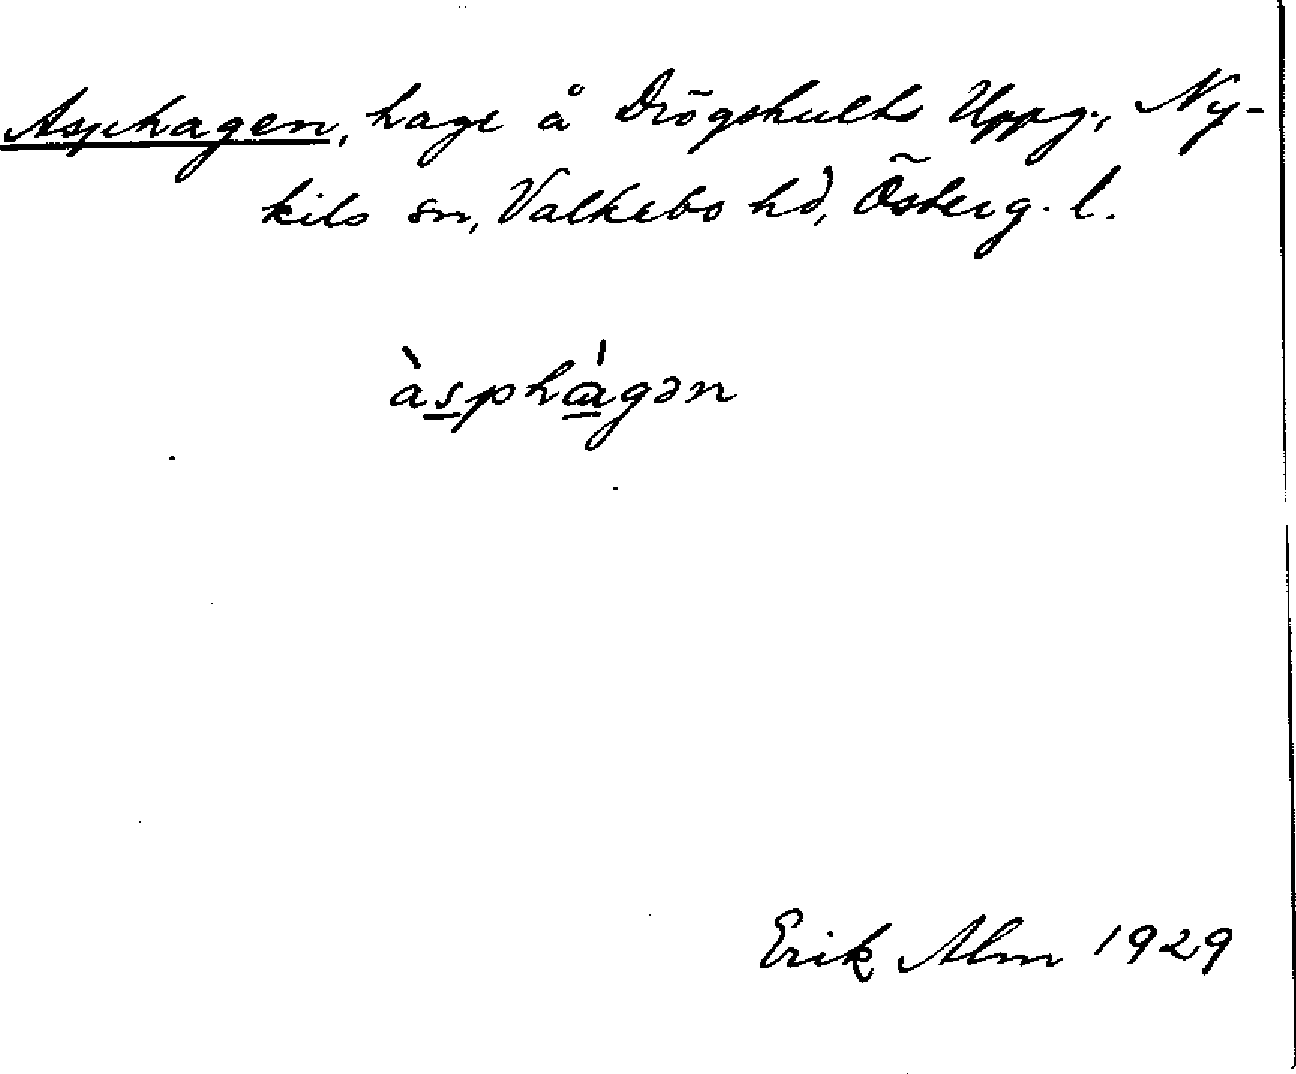 Asphagen, hage å Drögshults Uppg., Ny-
kils sn, Valkebo hd, Österg. l.
às̲phá̲gən
Erik Alm 1929